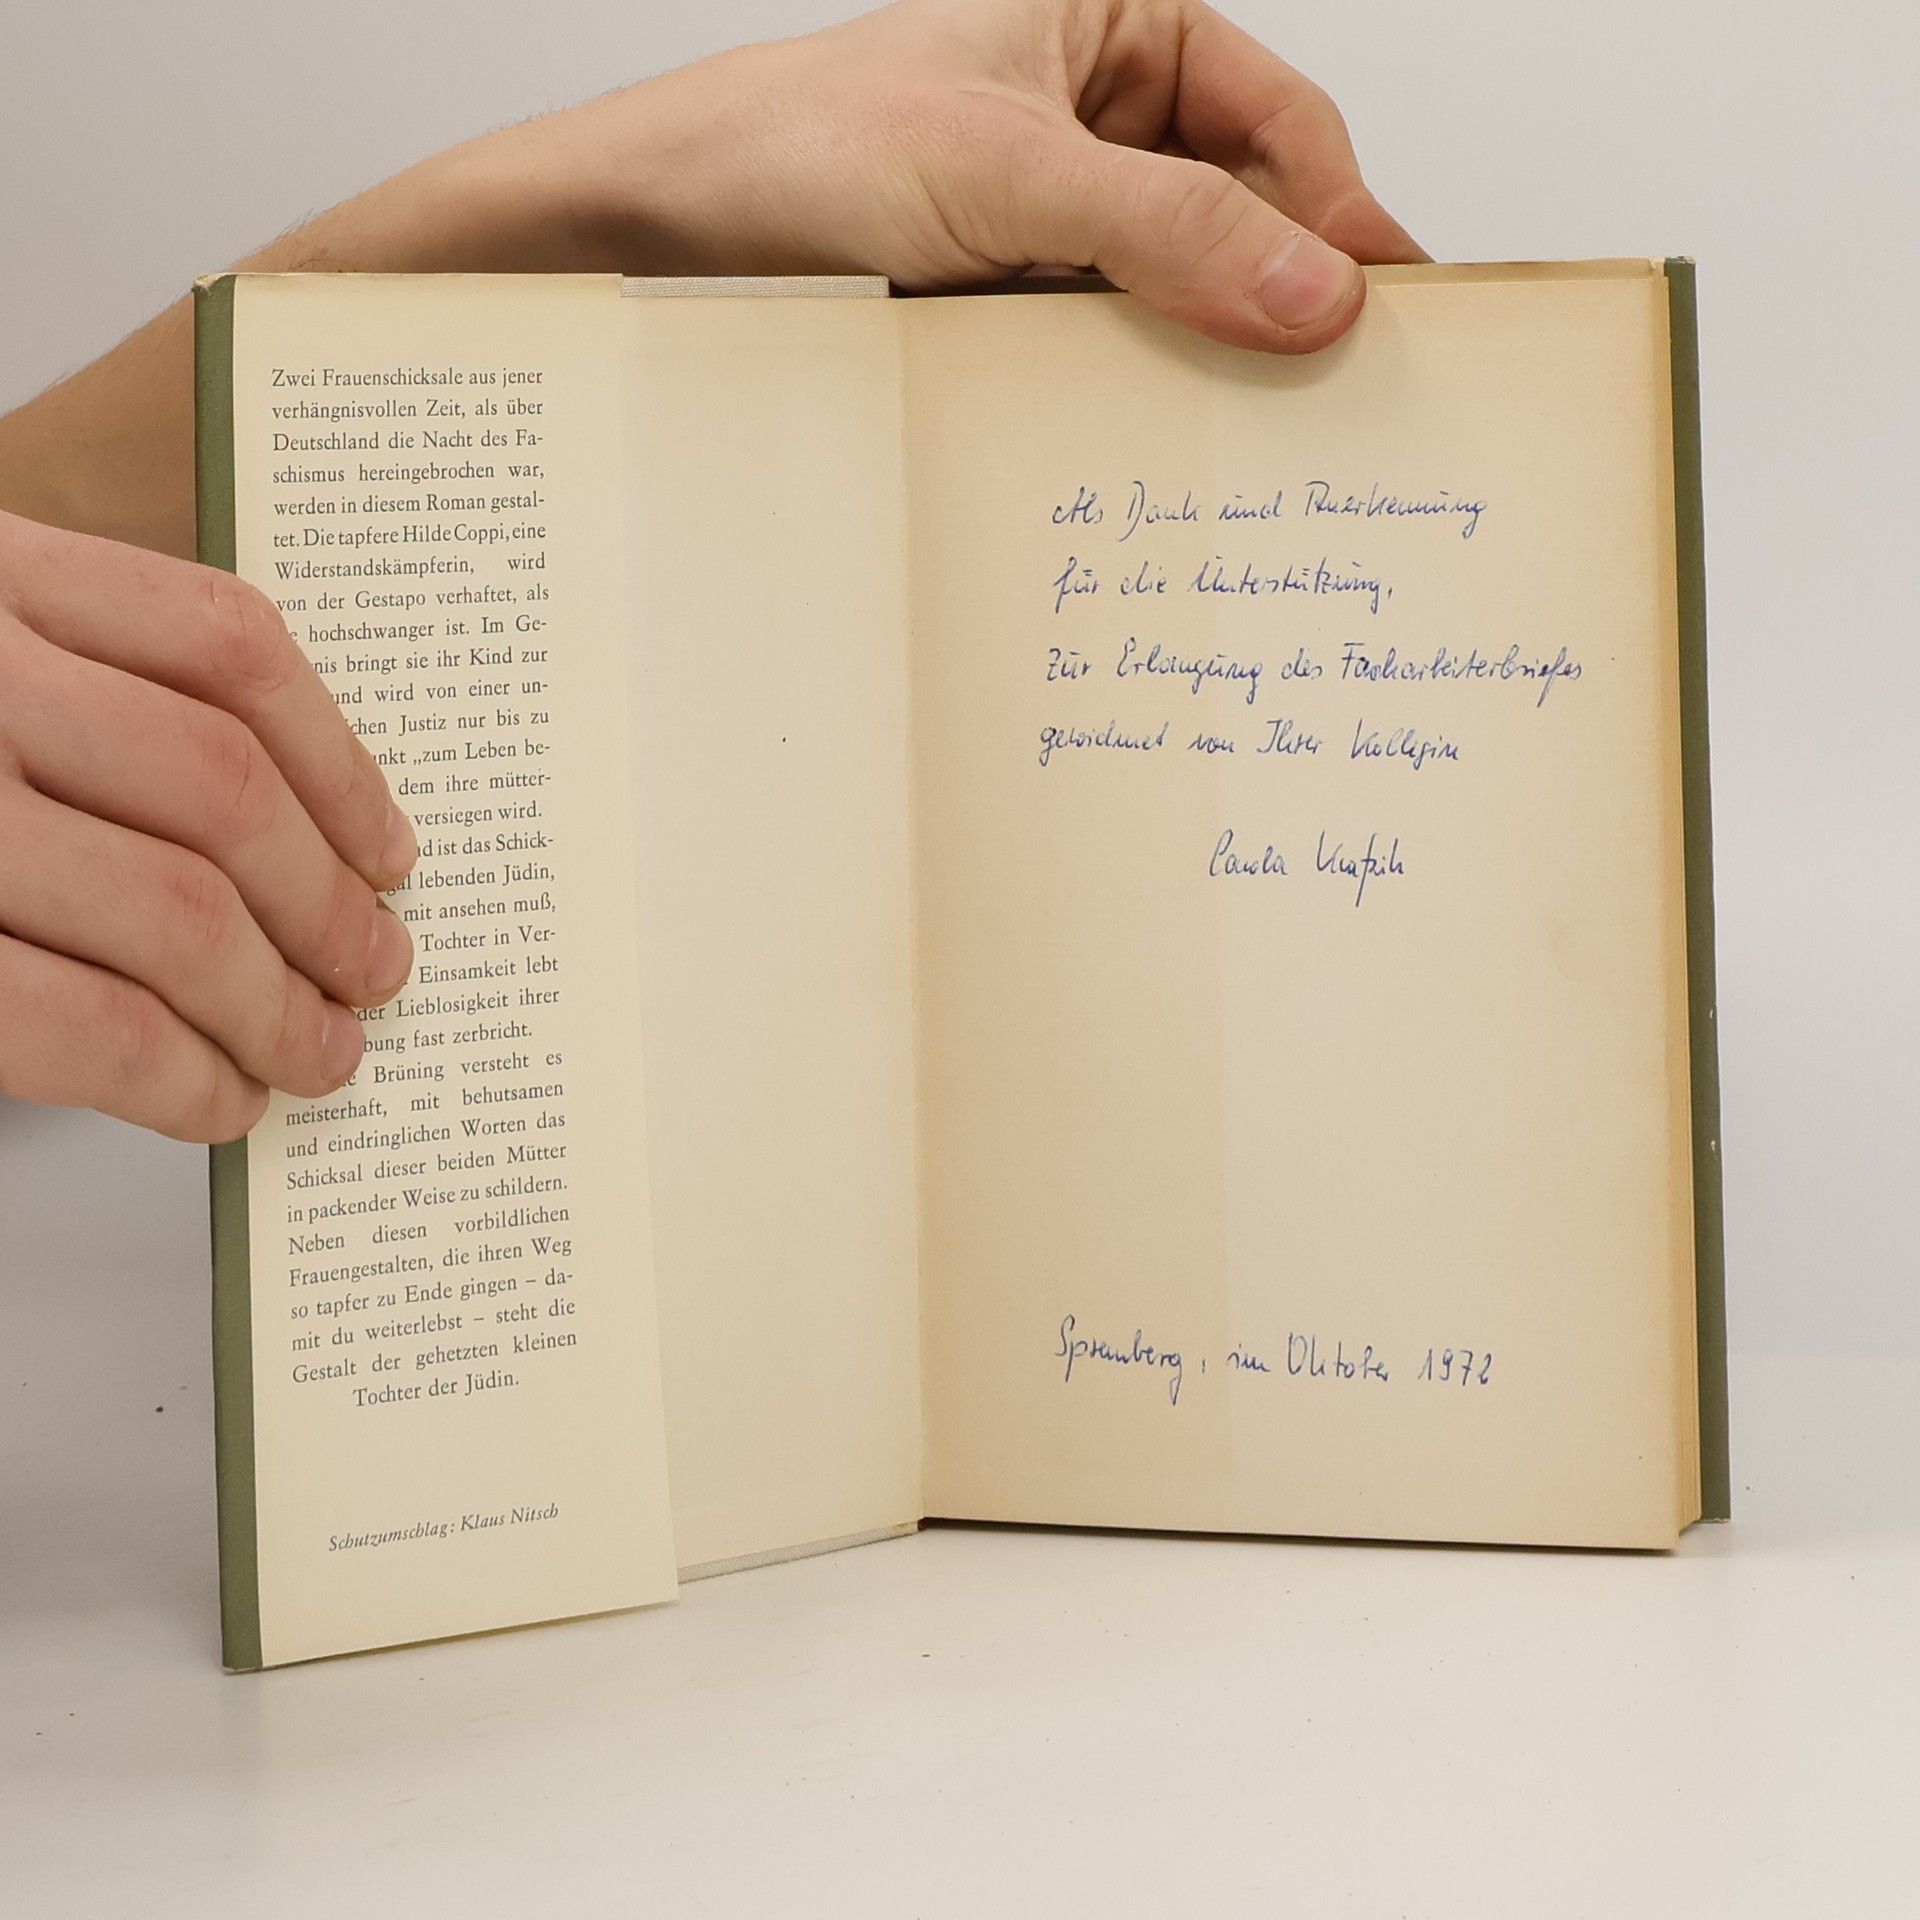 Zwei Frauenschicksale aus jener
verhängnisvollen Zeit, als über
Deutschland die Nacht des Fa-
schismus hereingebrochen war,
werden in diesem Roman gestal-
tet. Die tapfere Hilde Coppi, eine
Widerstandskämpferin, wird
von der Gestapo verhaftet, als
hochschwanger ist. Im Ge-
bringt sie ihr Kind zur
und wird von einer un-
Justiz nur bis zu
„zum Leben be-
dem ihre mütter-
versiegen wird.
ist das Schick-
lebenden Jüdin,
mit ansehen muß,
Tochter in Ver-
Einsamkeit lebt
der Lieblosigkeit ihrer
fast zerbricht.
Brüning versteht es
meisterhaft, mit behutsamen
und eindringlichen Worten das
Schicksal dieser beiden Mütter
in packender Weise zu schildern.
Neben diesen vorbildlichen
Frauengestalten, die ihren Weg
so tapfer zu Ende gingen – da-
mit du weiterlebst – steht die
Gestalt der gehetzten kleinen
Tochter der Jüdin.
Schutzumschlag: Klaus Nitsch
Als Dank und Anerkennung
für die Unterstützung,
Zur Erlangung des Facharbeiterbriefes
gewidmet von Ihrer Kollegin
Carola
Spremberg, im Oktober 1972